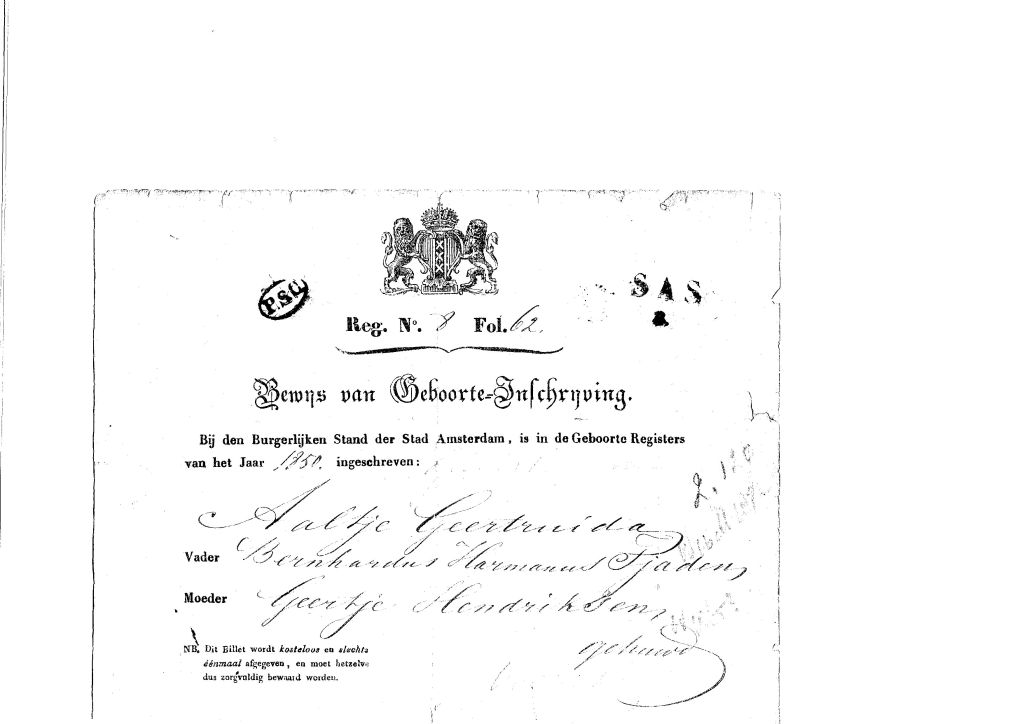 P.S.C.
SAS
Reg. No. 8 Fol. 62.
Bewijs van Geboorte-Inschrijving.
Bij den Burgerlijken Stand der Stad Amsterdam, is in de Geboorte Registers
van het Jaar 1850. ingeschreven:
Aaltje Geertruida
Vader Bernhardus Harmanus Tjaden,
Moeder Geertje Hendriksen,
gehuwd
NB. Dit Billet wordt kosteloos en slechts
éénmaal afgegeven, en moet hetzelve
dus zorgvuldig bewaard worden.